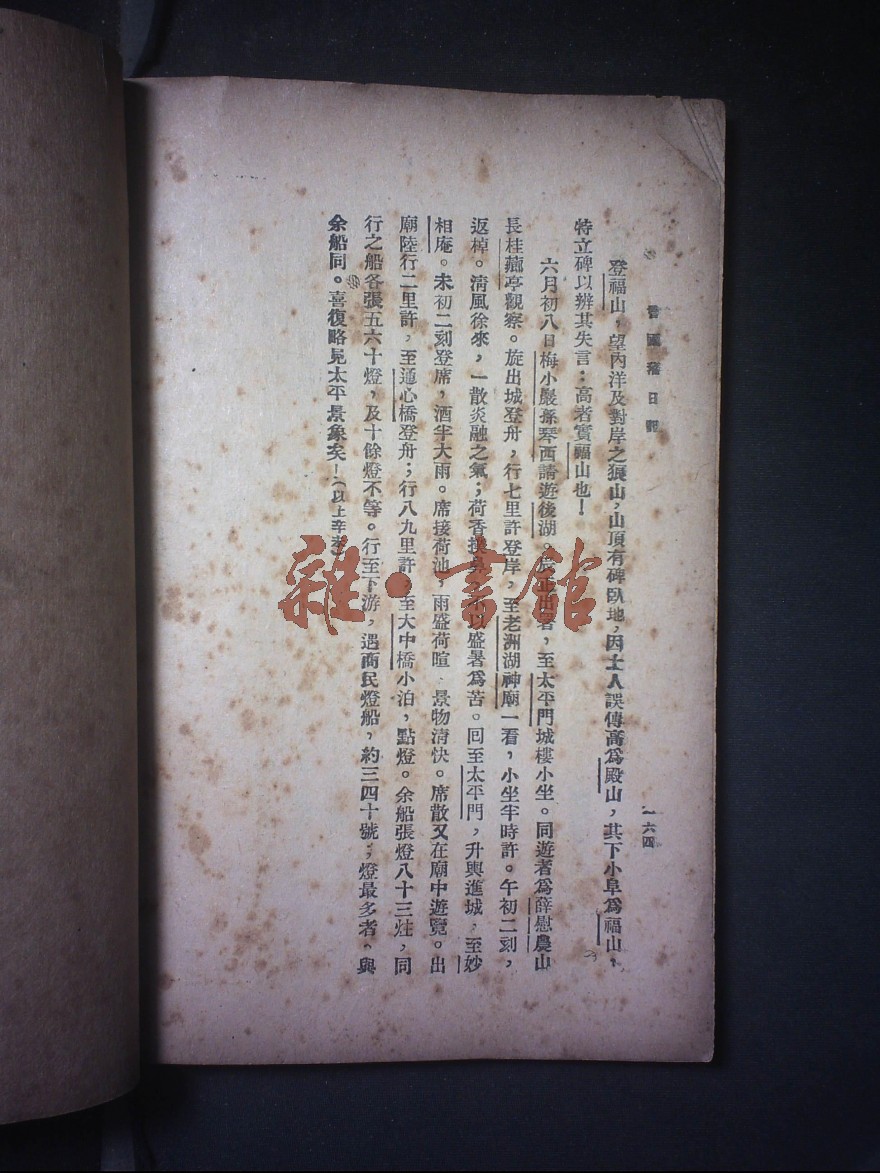 曾國藩日記
一六四
登福山，望內洋及對岸之狼山，山頂有碑臥地，因土人誤傳高爲殿山，其下小阜爲福山，
特立碑以辨其失言：高者實福山也！
六月初八日梅小巖孫琴西請遊後湖。辰正出署，至太平門城樓小坐。同遊者爲薛慰農山
長桂薌亭觀察。旋出城登舟，行七里許登岸，至老洲湖神廟一看，小坐半時許。午初二刻，
返棹。清風徐來，一散炎融之氣；荷香撲鼻，不以盛暑爲苦。回至太平門，升輿進城，至妙
相庵。未初二刻登席，酒半大雨。席接荷池，雨盛荷喧，景物清快。席散又在廟中遊覽。出
廟陸行二里許，至通心橋登舟；行八九里許，至大中橋小泊，點燈。余船張燈八十三炷，同
行之船各張五六十燈，及十餘燈不等。行至下游，遇商民燈船，約三四十號；燈最多者，與
余船同。喜復略見太平景象矣！（以上辛未）
雜·書館